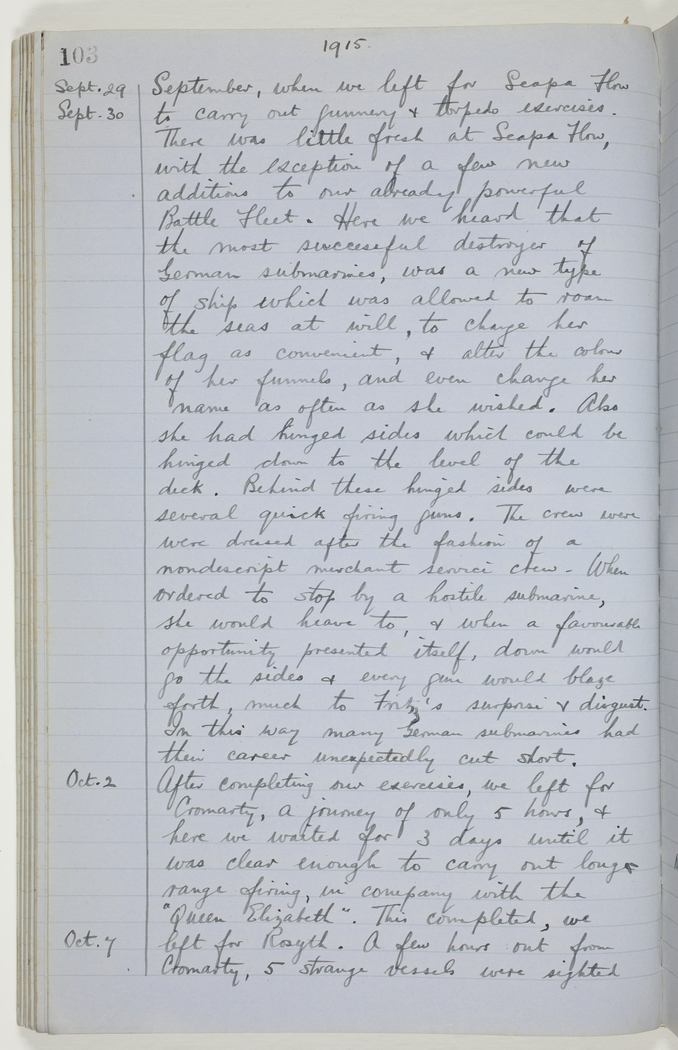 103
1915.
Sept. 29 September, when we left for Scapa Flow
Sept. 30 to carry out gunnery & torpedo exercises.
There was little fresh at Scapa Flow,
with the exception of a few new
additions to our already powerful
Battle Fleet. Here we heard that
the most successful destroyer of
German submarines, was a new type
of ship which was allowed to roam
the seas at will, to change her
flag as convenient, & alter the colour
of her funnels, and even change her
name as often as she wished. Also
she had hinged sides which could be
hinged down to the level of the
deck. Behind these hinged sides were
several quick firing guns. The crew were
were dressed after the fashion of a
nondescript merchant service crew - When
ordered to stop by a hostile submarine,
she would heave to, & when a favourable
opportunity presented itself, down would
go the sides & every gun would blaze
forth, much to Fritz's surprise & disgust.
In this way many German submarines had
their career unexpectedly cut short.
Oct. 2 After completing our exercises, we left for
Cromarty, a journey of only 5 hours, &
here we waited for 3 days until it
was clear enough to carry out long
range firing, in company with the
"Queen Elizabeth". This completed, we
Oct. 7 left for Rosyth. A few hours out from
Cromarty, 5 strange vessels were sighted